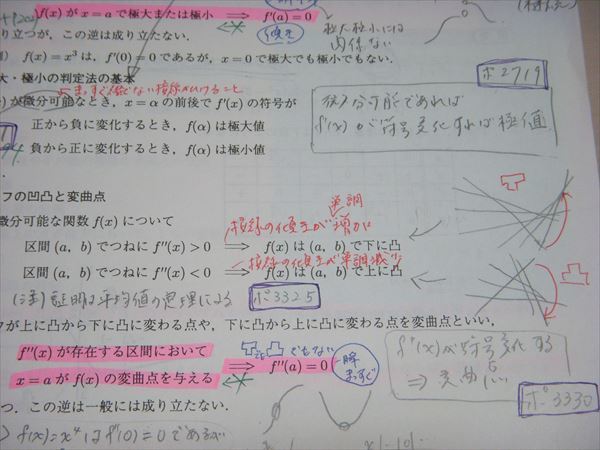 f(x) が x = a で極大または極小 ⟹ f'(a) = 0
り立つが，この逆は成り立たない．
傾き
極大極小には
関係ない
f(x) = x³ は，f'(0) = 0 であるが，x = 0 で極大でも極小でもない．
大・極小の判定法の基本
が微分可能なとき，x = α の前後で f'(x) の符号が
正から負に変化するとき，f(α) は極大値
負から正に変化するとき，f(α) は極小値
ポ2719
微分可能であれば
f'(x) が符号変化すれば極値
フの凹凸と変曲点
微分可能な関数 f(x) について
接線の傾きが単調増加
区間 (a, b) でつねに f''(x) > 0 ⟹ f(x) は (a, b) で下に凸
接線の傾きが単調減少
区間 (a, b) でつねに f''(x) < 0 ⟹ f(x) は (a, b) で上に凸
(注) 証明は平均値の定理による
ポ3325
フが上に凸から下に凸に変わる点や，下に凸から上に凸に変わる点を変曲点といい．
f''(x) が存在する区間において
x = a が f(x) の変曲点を与える ⟹ f''(a) = 0
凸でも
でもない
一瞬
まっすぐ
f''(x)が符号変化する
⇒ 変曲点
ポ3330
つ．この逆は一般には成り立たない．
f(x)=x⁴ は f''(0)=0 であるが